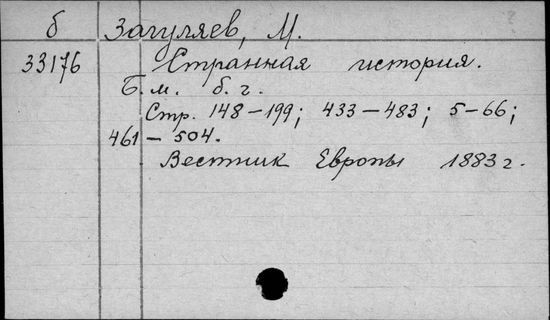 б Загуляев, М.
33176 Странная история.
Б. м. б. г.
Стр. 148-199; 433-483; 5-66;
461-504.
Вестник Европы 1883 г.